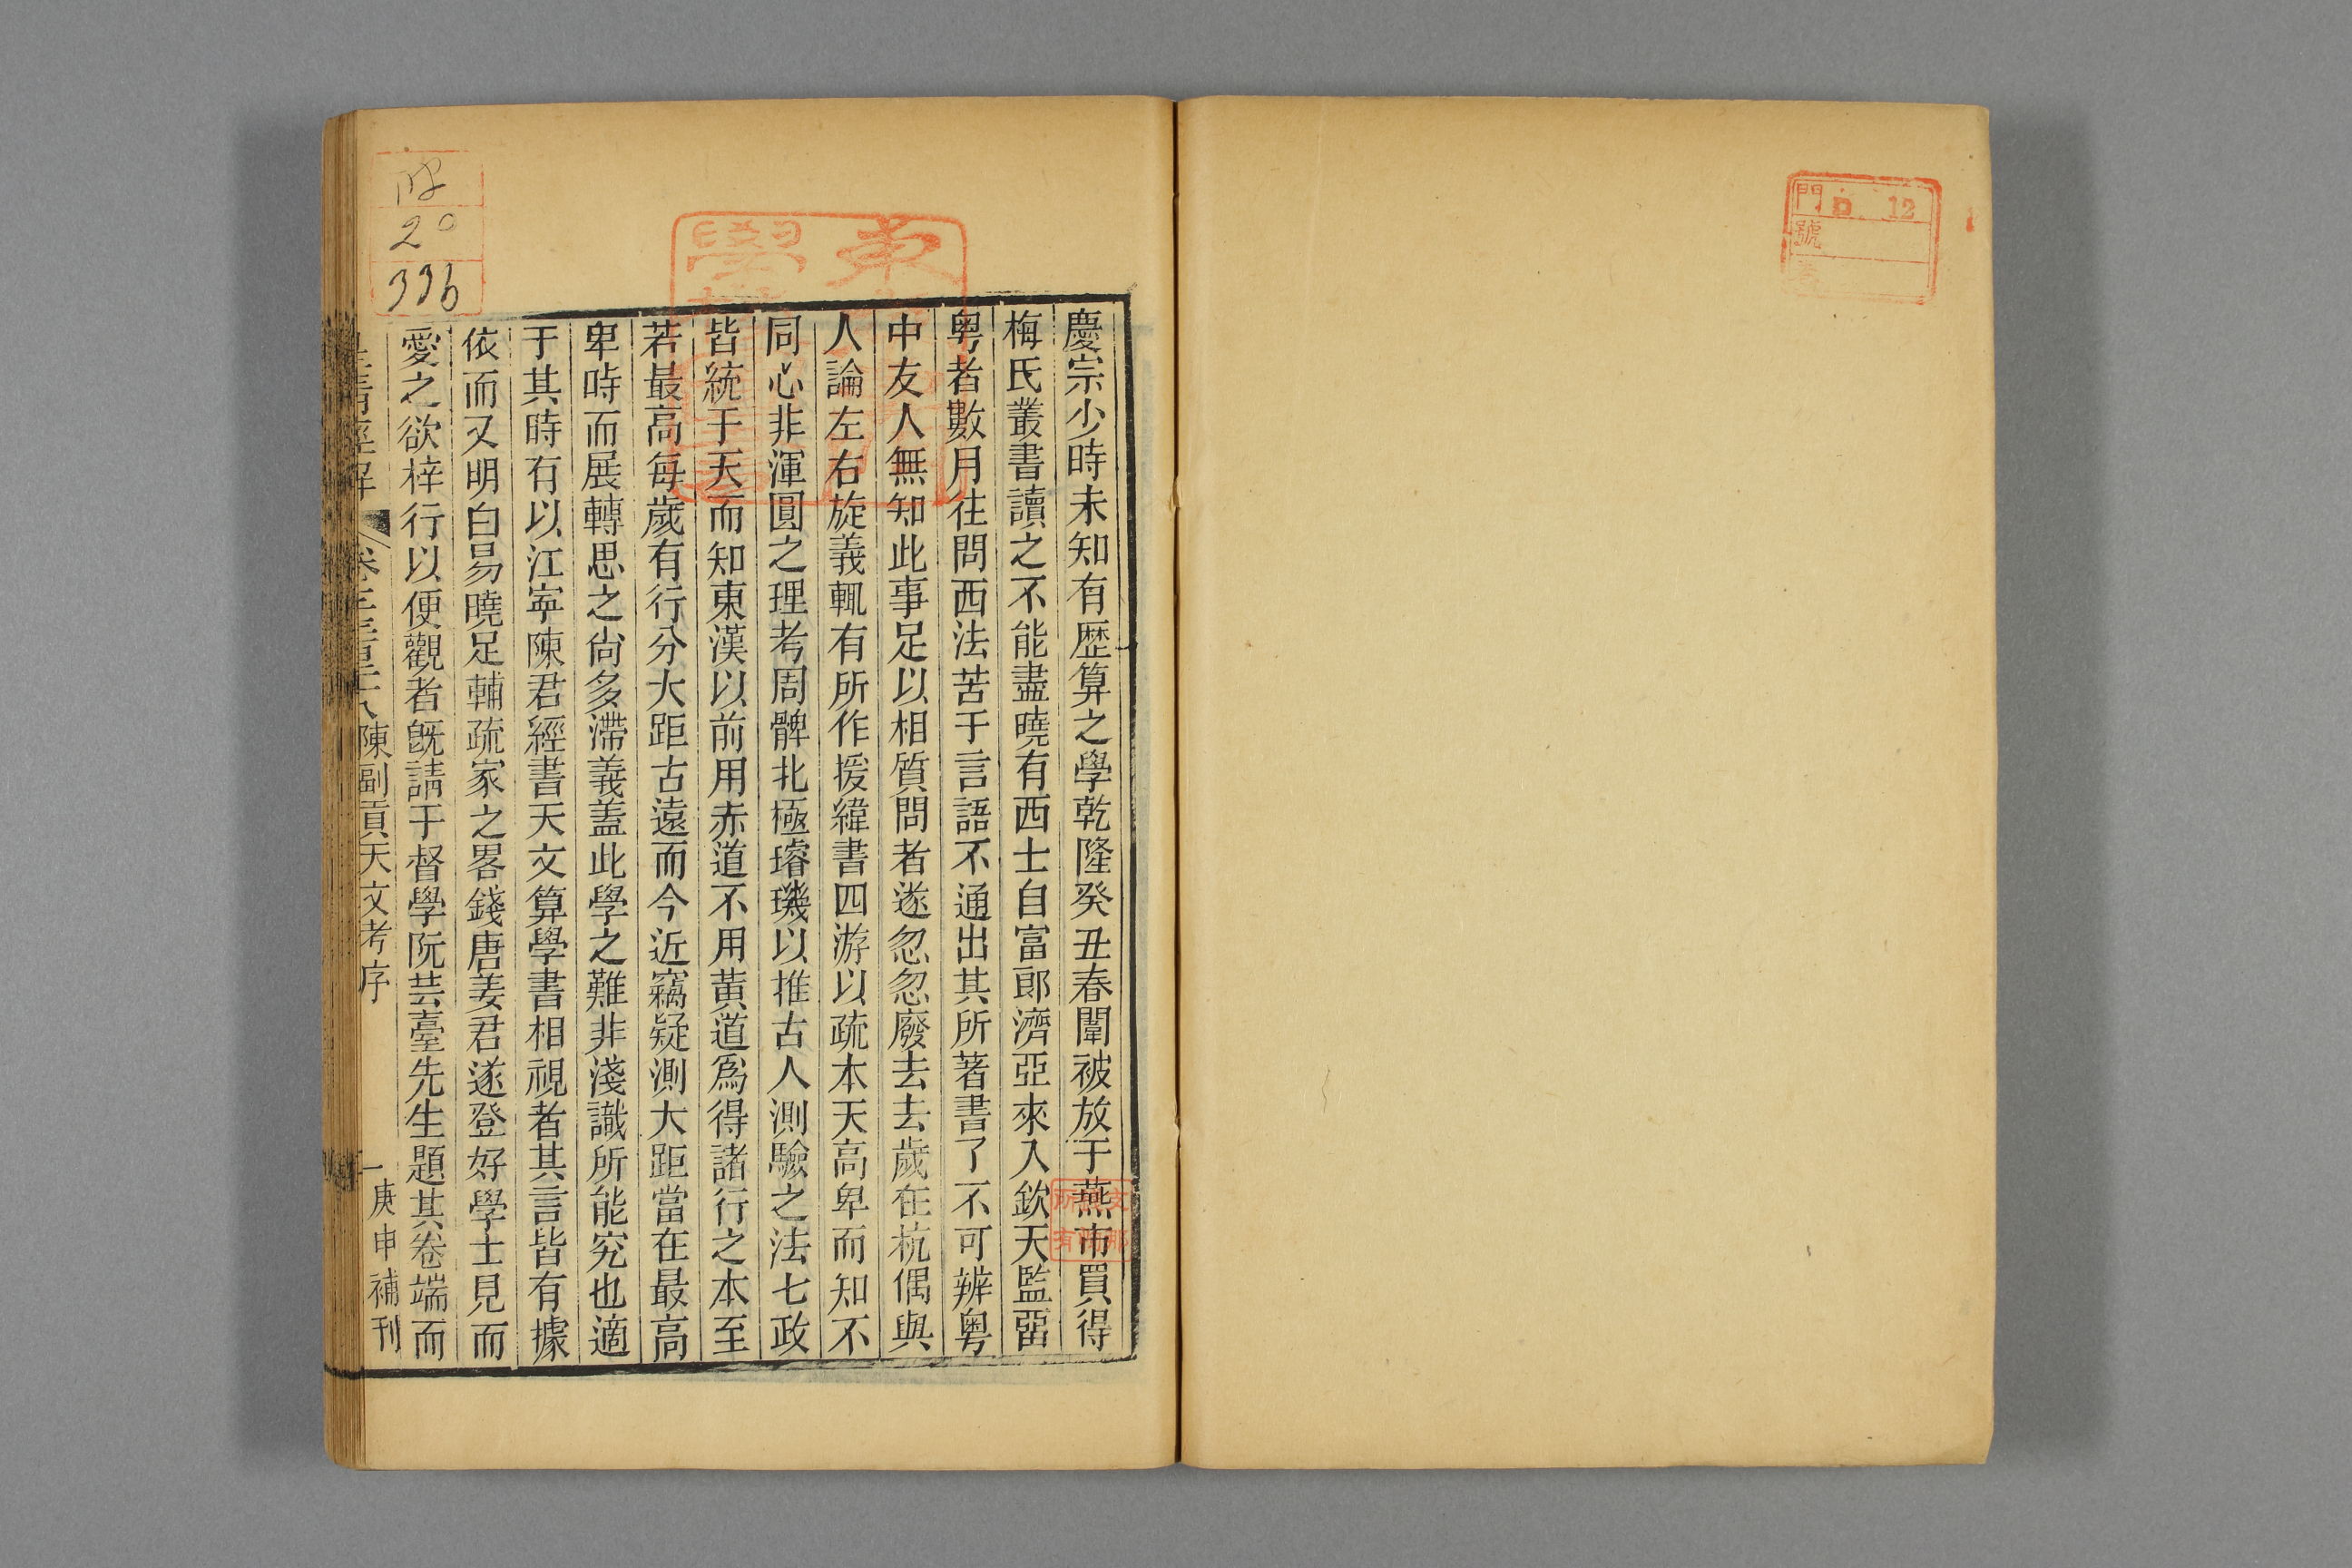 門 D. 12
號
慶宗少時未知有歷算之學乾隆癸丑春闈被放于燕市買得
梅氏叢書讀之不能盡曉有西士自富郎濟亞來入欽天監留
粵者數月往問西法苦于言語不通出其所著書了不可辨粵
中友人無知此事足以相質問者遂忽忽廢去去歲在杭偶與
人論左右旋義輒有所作援緯書四游以疏本天高卑而知不
同心非渾圓之理考周髀北極璿璣以推古人測驗之法七政
皆統于天而知東漢以前用赤道不用黃道為得諸行之本至
若最高每歲有行分大距古遠而今近竊疑測大距當在最高
卑時而展轉思之尚多滯義蓋此學之難非淺識所能究也適
于其時有以江寧陳君經書天文算學書相視者其言皆有據
依而又明白易曉足輔疏家之畧錢唐姜君遂登好學士見而
愛之欲梓行以便觀者既請于督學阮芸臺先生題其卷端而
陳副貢天文考序
一
庚申補刊
20
336